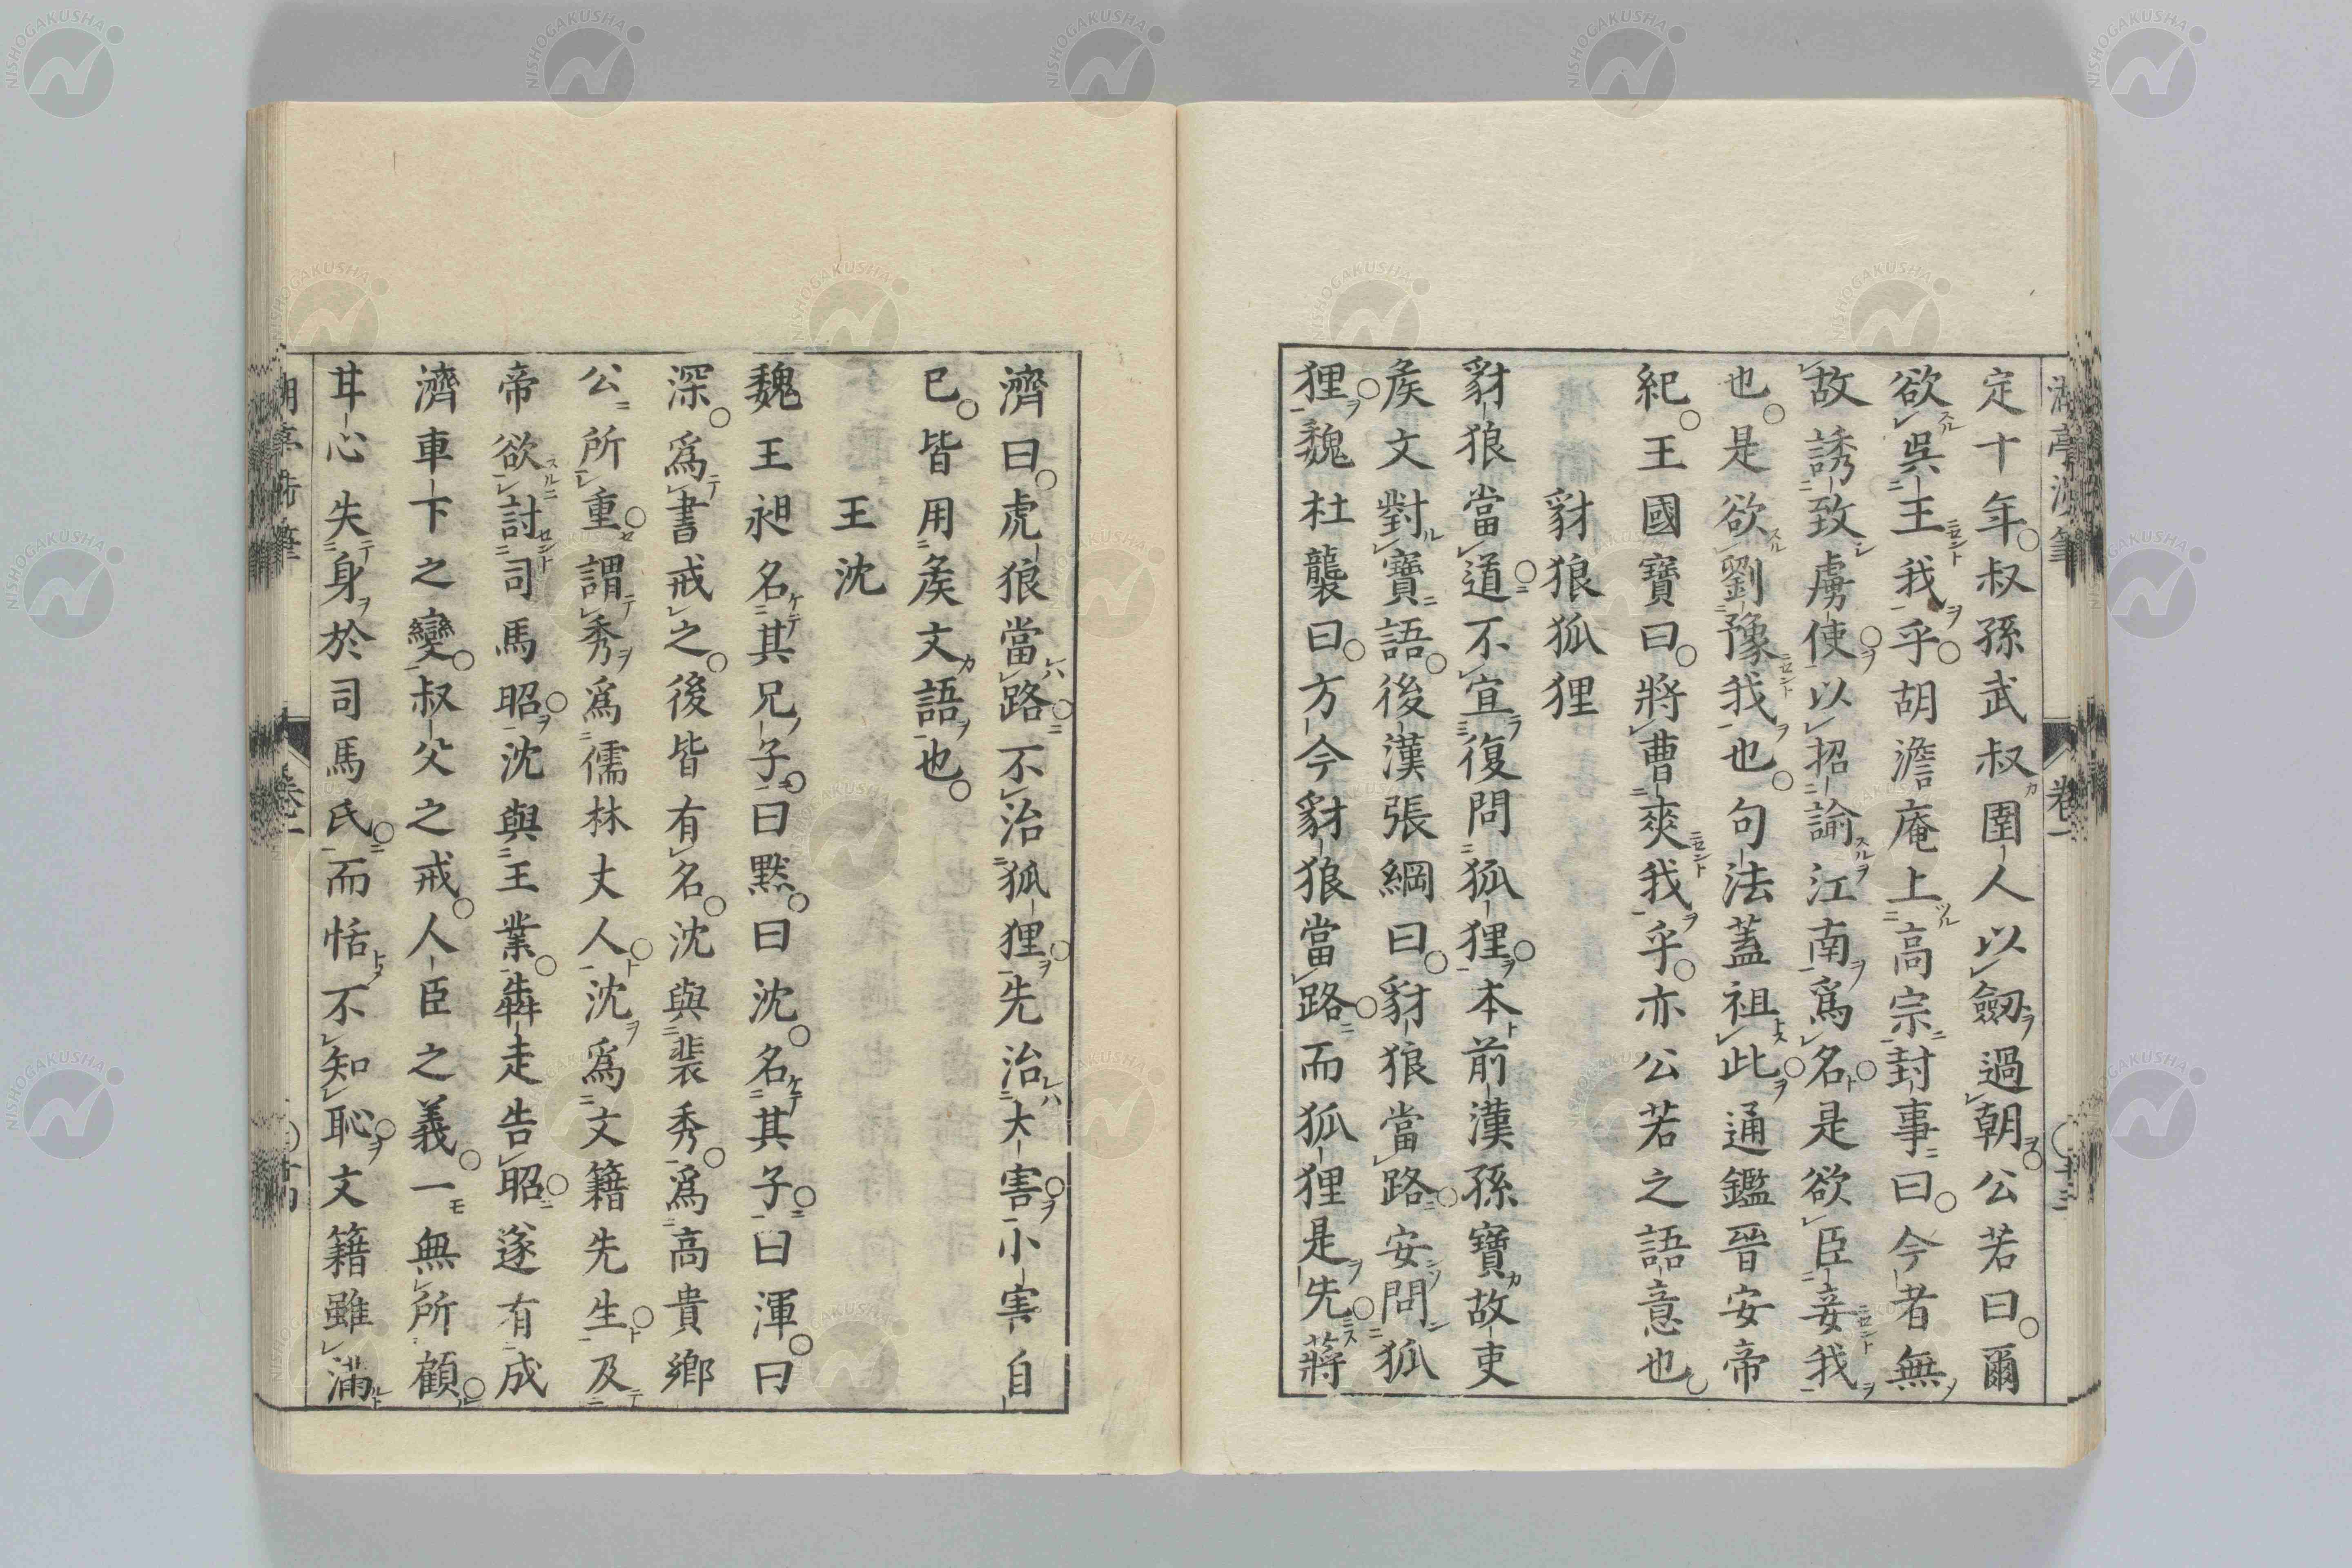 定十年叔孫武叔圉人以劔過朝公若曰爾
欲吳王我乎胡澹庵上高宗封事曰今者無
故誘致虜使以招諭江南爲名是欲臣妾我
也是欲劉豫我也句法蓋祖此通鑑晉安帝
紀王國寶曰將曹爽我乎亦公若之語意也
豺狼狐狸
豺狼當道不宜復問狐狸本前漢孫寶故吏
矦文對寶語後漢張綱曰豺狼當路安問狐
狸魏杜襲曰方今豺狼當路而狐狸是先蔣
濟曰虎狼當路不治狐狸先治大害小害自
已皆用矦文語也
王沈
魏王昶名其兄子曰默曰沈名其子曰渾曰
深爲書戒之後皆有名沈與裴秀爲高貴鄉
公所重謂秀爲儒林丈人沈爲文籍先生及
帝欲討司馬昭沈與王業犇走告昭遂有成
濟車下之變叔父之戒人臣之義一無所顧
甘心失身於司馬氏而恬不知恥文籍雖滿
卷一
NISHOGAKUSHA